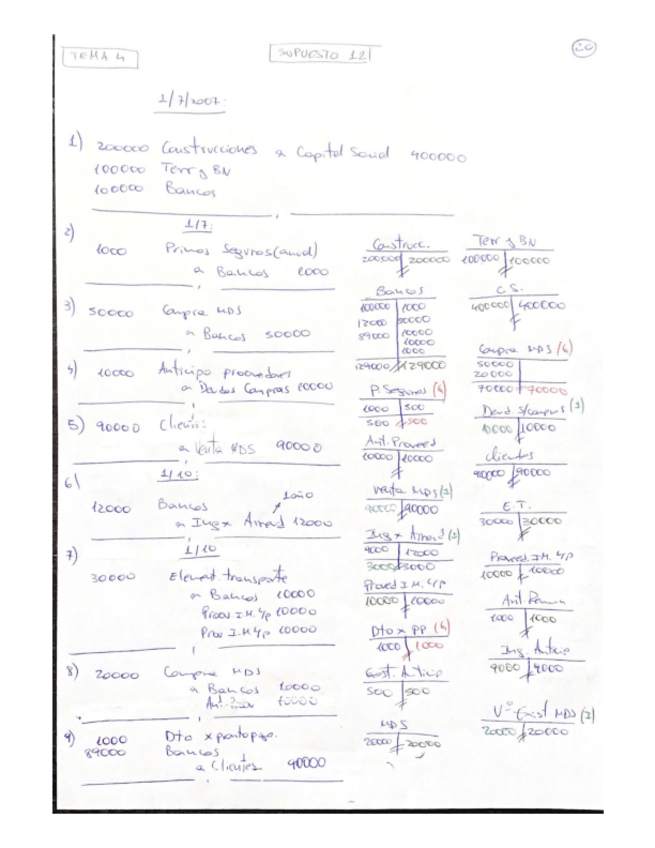 TEMA 4
SUPUESTO 12
20
1/7/2007:
1) 200000 Construcciones a Capital Social 400000
100000 Terr y BN
100000 Bancos
2) 1/7:
1000 Primas Seguros (anual)
a Bancos 1000
3) 50000 Compra MDS
a Bancos 50000
4) 10000 Anticipo proveedores
a Dtos Compras 10000
5) 90000 Clientes
a Venta MDS 90000
6) 1/10:
1 año
12000 Bancos
a Ing x Arrend 12000
7) 1/10
30000 Element. transporte
a Bancos 10000
Prov I.M. c/p 10000
Prov I.M. l/p 10000
8) 20000 Compra MDS
a Bancos 10000
10000
9) 1000 Dto x pronto pago
89000 Bancos
a Clientes 90000
Construcc.
200000 200000
Terr y BN
100000 100000
Bancos
100000 1000
12000 50000
89000 10000
10000
1000
129000 129000
C.S.
400000 400000
Compra MDS (G)
50000
20000
70000 70000
P. Seguros (G)
1000 500
500 500
10000 10000
Ant. Proveed
10000 10000
Clientes
90000 90000
Venta MDS (I)
90000 90000
E.T.
30000 30000
Ing x Arrend (I)
9000 12000
3000 3000
Proveed I.M. c/p
10000 10000
Proveed I.M. l/p
10000 10000
1000 1000
Dto x PP (G)
1000 1000
Ing. Anticip
9000 9000
Gast. Anticip
500 500
Vº Exist MDS (I)
20000 20000
MDS
20000 20000